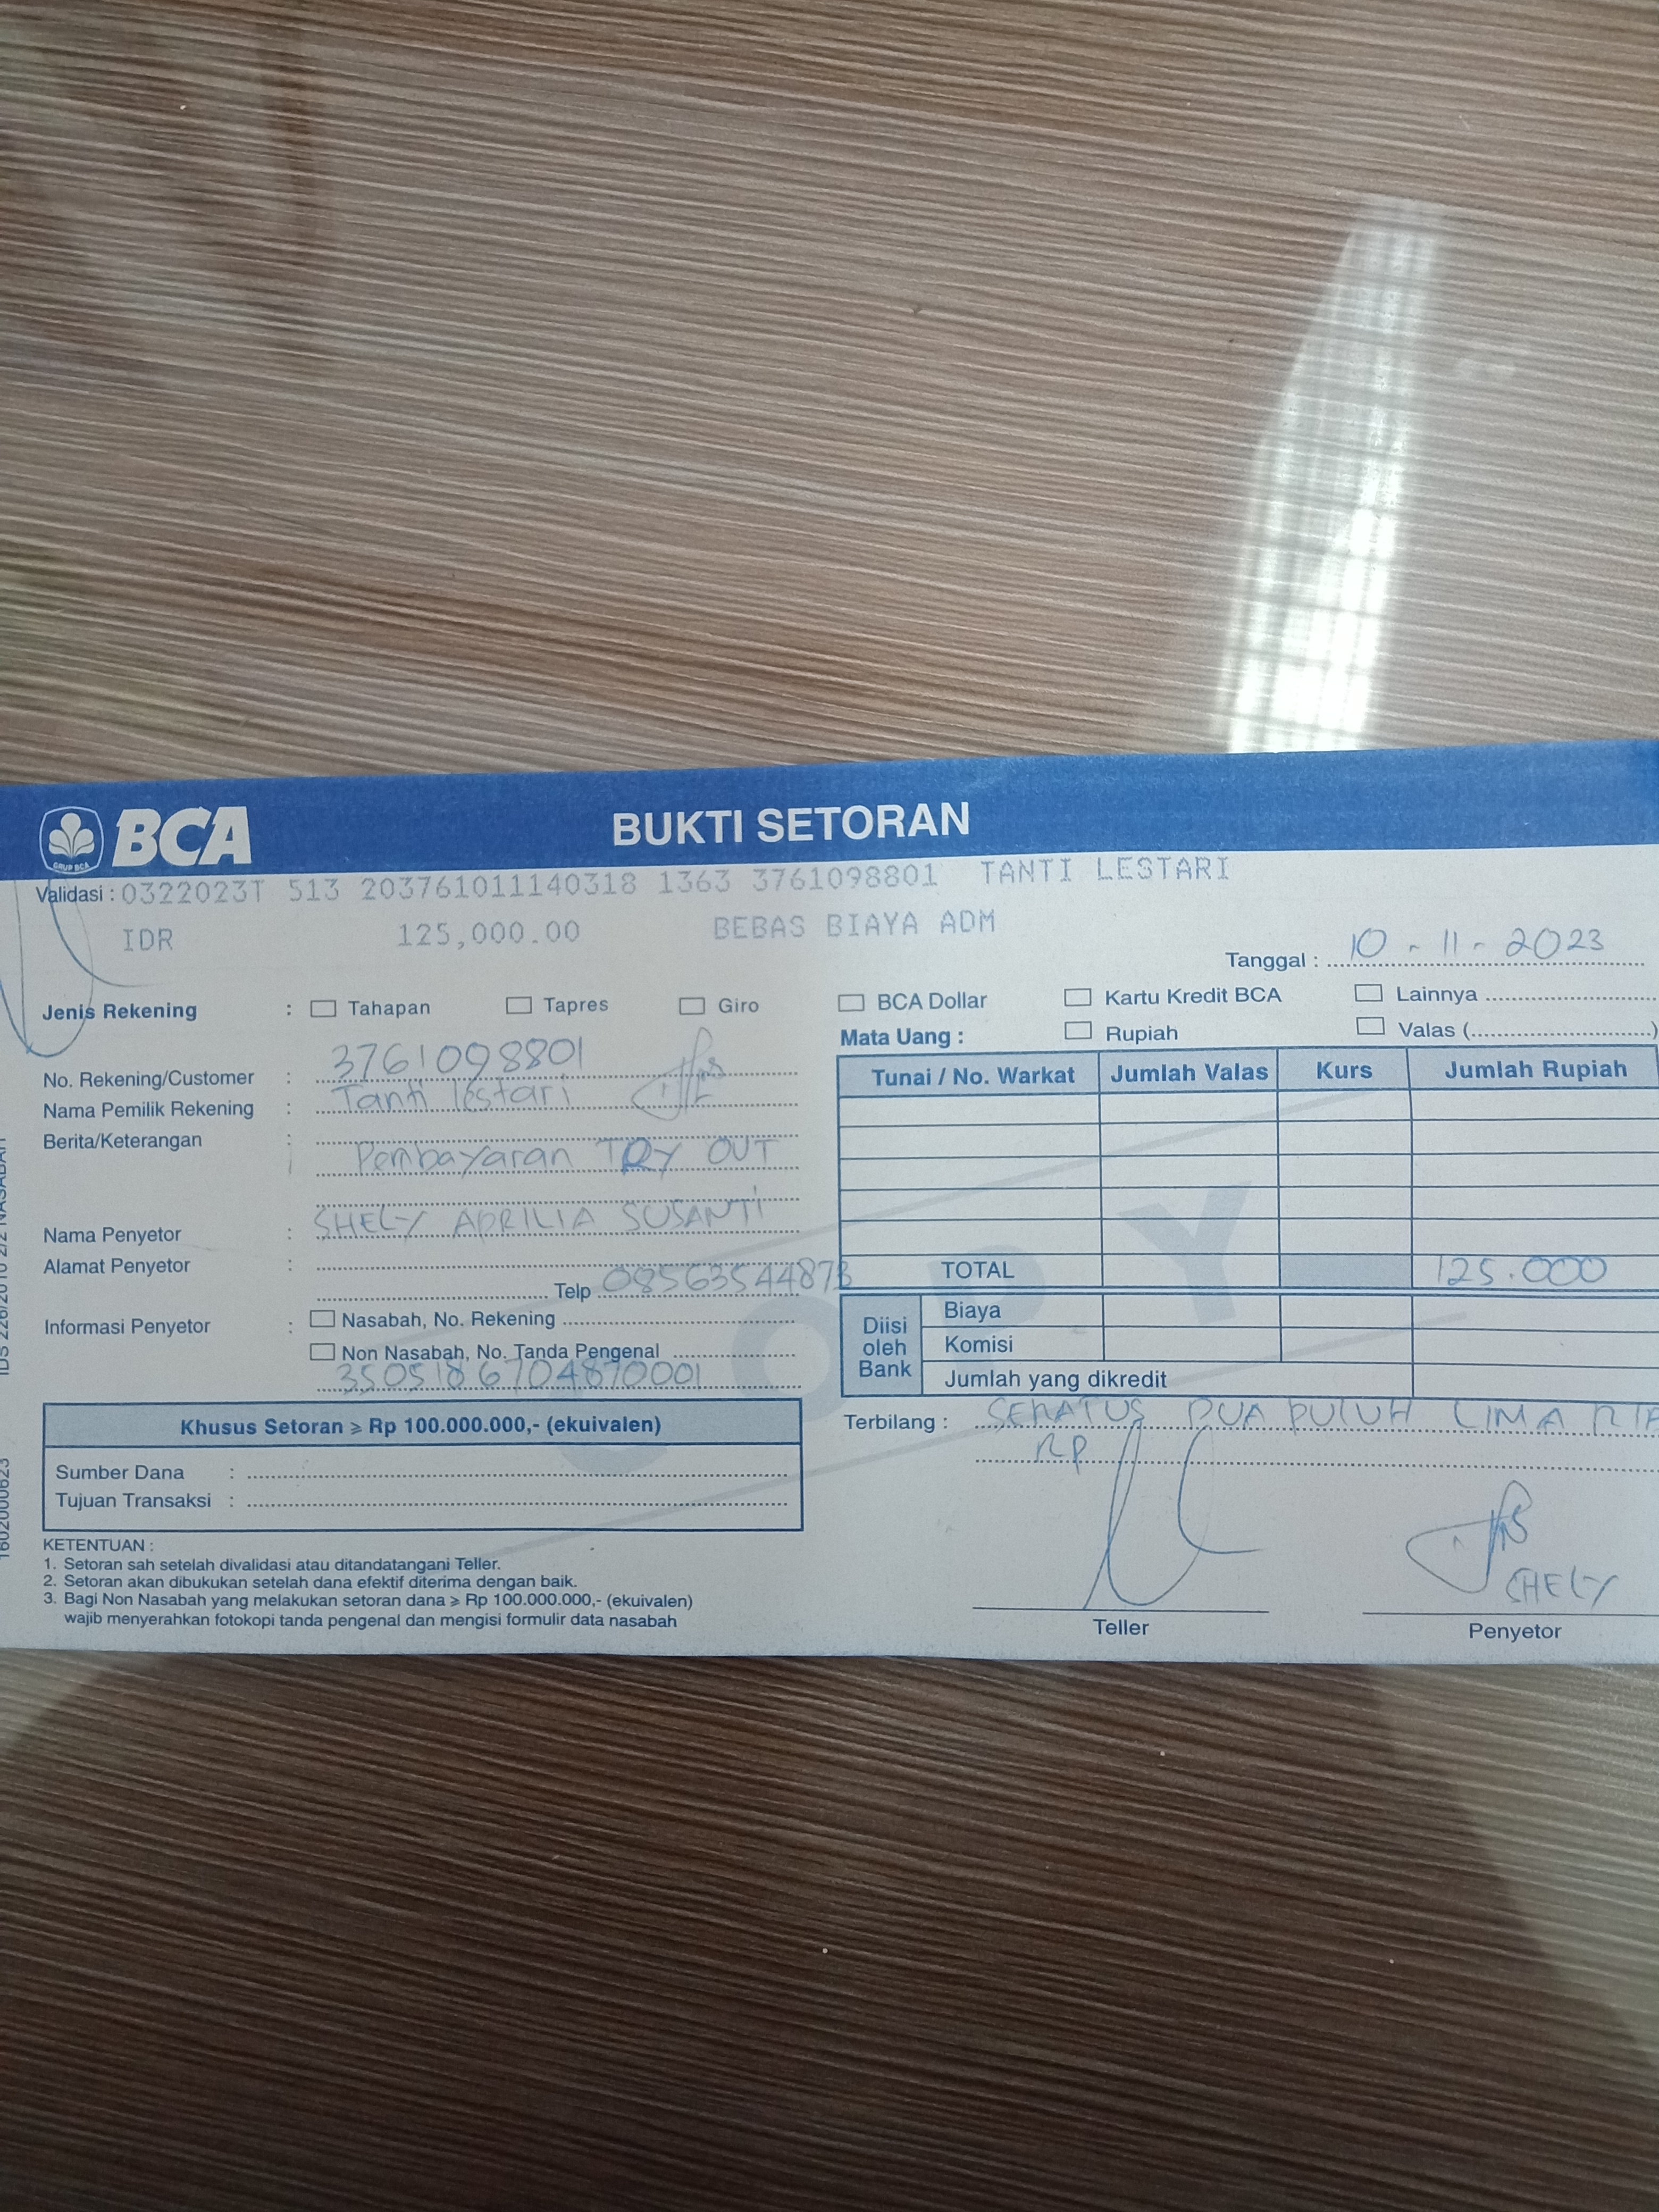 BCA
GRUP BCA
BUKTI SETORAN
Validasi : 0322023T 513 203761011140318 1363 3761098801 TANTI LESTARI
IDR 125,000.00 BEBAS BIAYA ADM
Tanggal : 10 - 11 - 2023
Jenis Rekening : Tahapan Tapres Giro BCA Dollar Kartu Kredit BCA Lainnya
Mata Uang : Rupiah Valas (....................)
No. Rekening/Customer : 3761098801
Nama Pemilik Rekening : Tanti lestari
Berita/Keterangan :
Pembayaran TRY OUT
Nama Penyetor : SHELY APRILIA SUSANTI
Alamat Penyetor :
Telp 08563544873
Informasi Penyetor : Nasabah, No. Rekening
Non Nasabah, No. Tanda Pengenal
3505186704870001
Tunai / No. Warkat Jumlah Valas Kurs Jumlah Rupiah
TOTAL 125.000
Diisi oleh Bank
Biaya
Komisi
Jumlah yang dikredit
COPY
Khusus Setoran ⩾ Rp 100.000.000,- (ekuivalen)
Sumber Dana :
Tujuan Transaksi :
Terbilang : SERATUS DUA PULUH LIMA
RP
KETENTUAN :
1. Setoran sah setelah divalidasi atau ditandatangani Teller.
2. Setoran akan dibukukan setelah dana efektif diterima dengan baik.
3. Bagi Non Nasabah yang melakukan setoran dana ⩾ Rp 100.000.000,- (ekuivalen)
wajib menyerahkan fotokopi tanda pengenal dan mengisi formulir data nasabah
SHELY
Teller
Penyetor